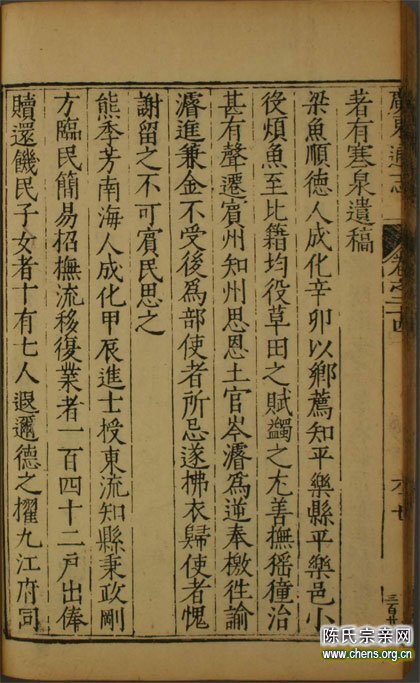 廣東通志
著有寒泉遺稿
梁魚順德人成化辛卯以鄉薦知平樂縣平樂邑小
役煩魚至比籍均役草田之賦蠲之尤善撫猺獞治
甚有聲遷賓州知州思恩土官岑濬爲逆奉檄徃諭
濬進兼金不受後爲部使者所忌遂拂衣歸使者愧
謝留之不可賓民思之
熊季芳南海人成化甲辰進士授東流知縣秉政剛
方臨民簡易招撫流移復業者一百四十二戸出俸
贖還饑民子女者十有七人遐邇德之擢九江府同
陈氏宗亲网
www.chens.org.cn